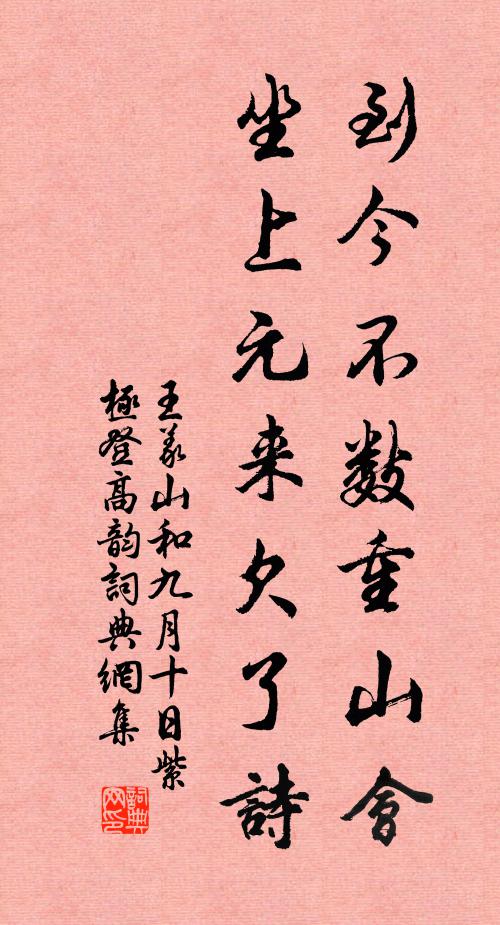 到今不数重山會
坐上元来欠了詩
王义山和九月十日紫
極登高韵詞典網集
詞典網印